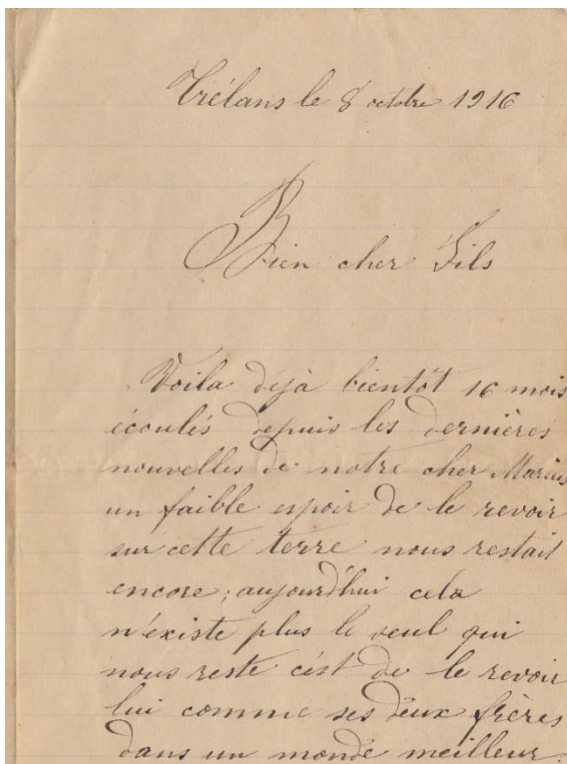 Trélans le 8 octobre 1916
Bien cher Fils
Voila déjà bientôt 16 mois
écoulés depuis les dernières
nouvelles de notre cher Marius
un faible espoir de le revoir
sur cette terre nous restait
encore; aujourd'hui cela
n'existe plus le seul qui
nous reste c'est de le revoir
lui comme ses deux frères
dans un monde meilleur.